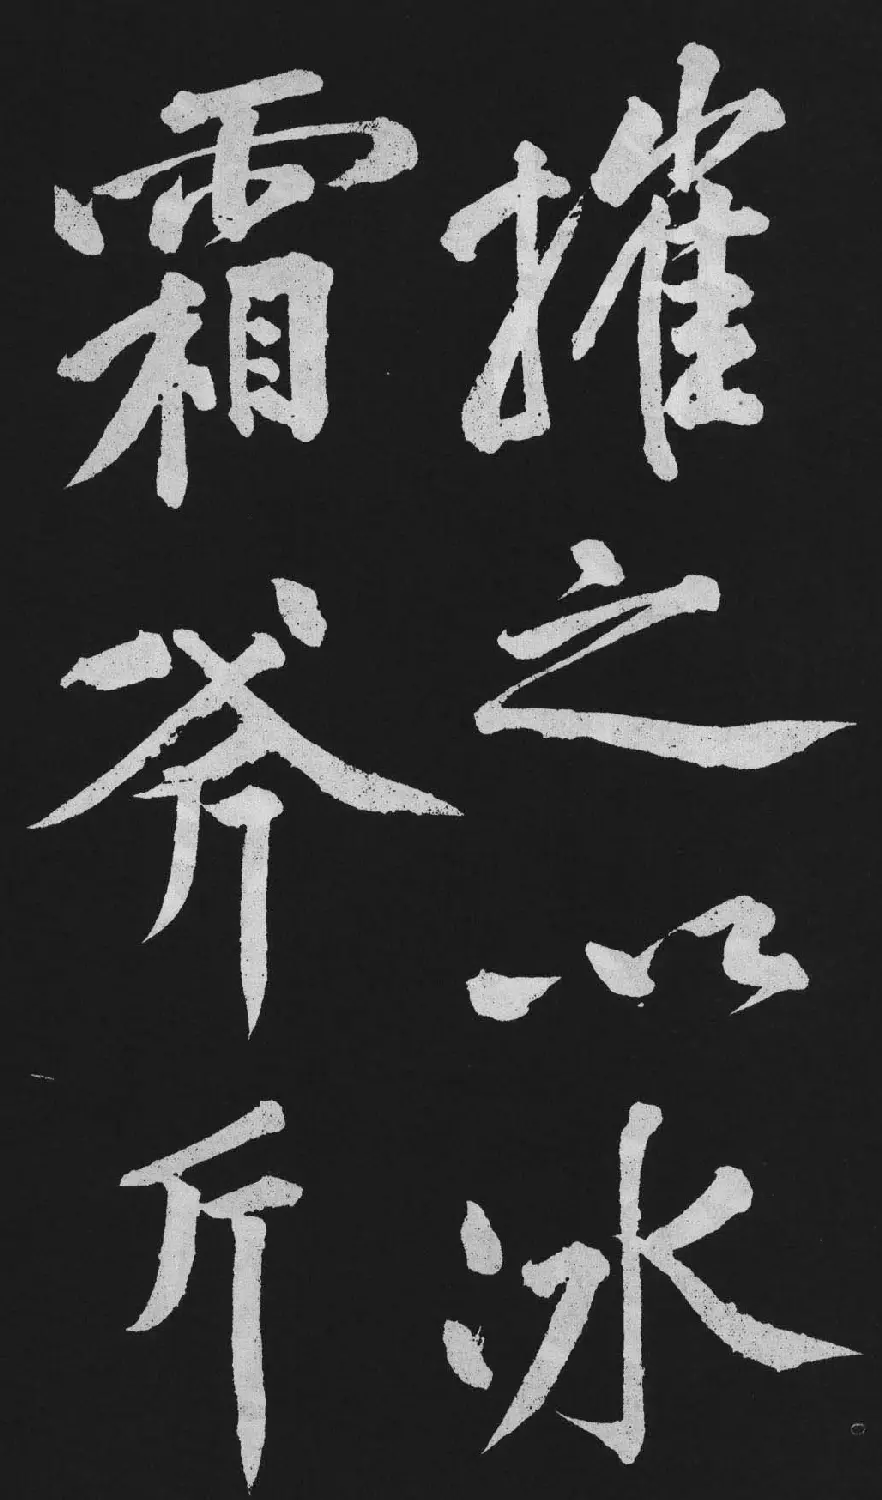 摧之以冰
霜斧斤